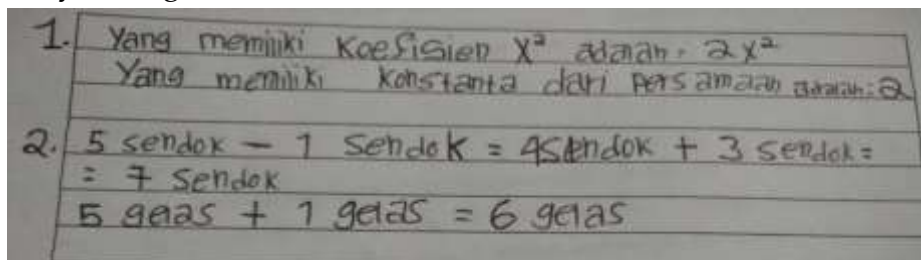 1. Yang memiliki Koefisien X² adalah = 2x²
Yang memiliki Konstanta dari Persamaan adalah: 2
2. 5 sendok - 1 Sendok = 4 Sendok + 3 sendok =
= 7 Sendok
5 gelas + 1 gelas = 6 gelas